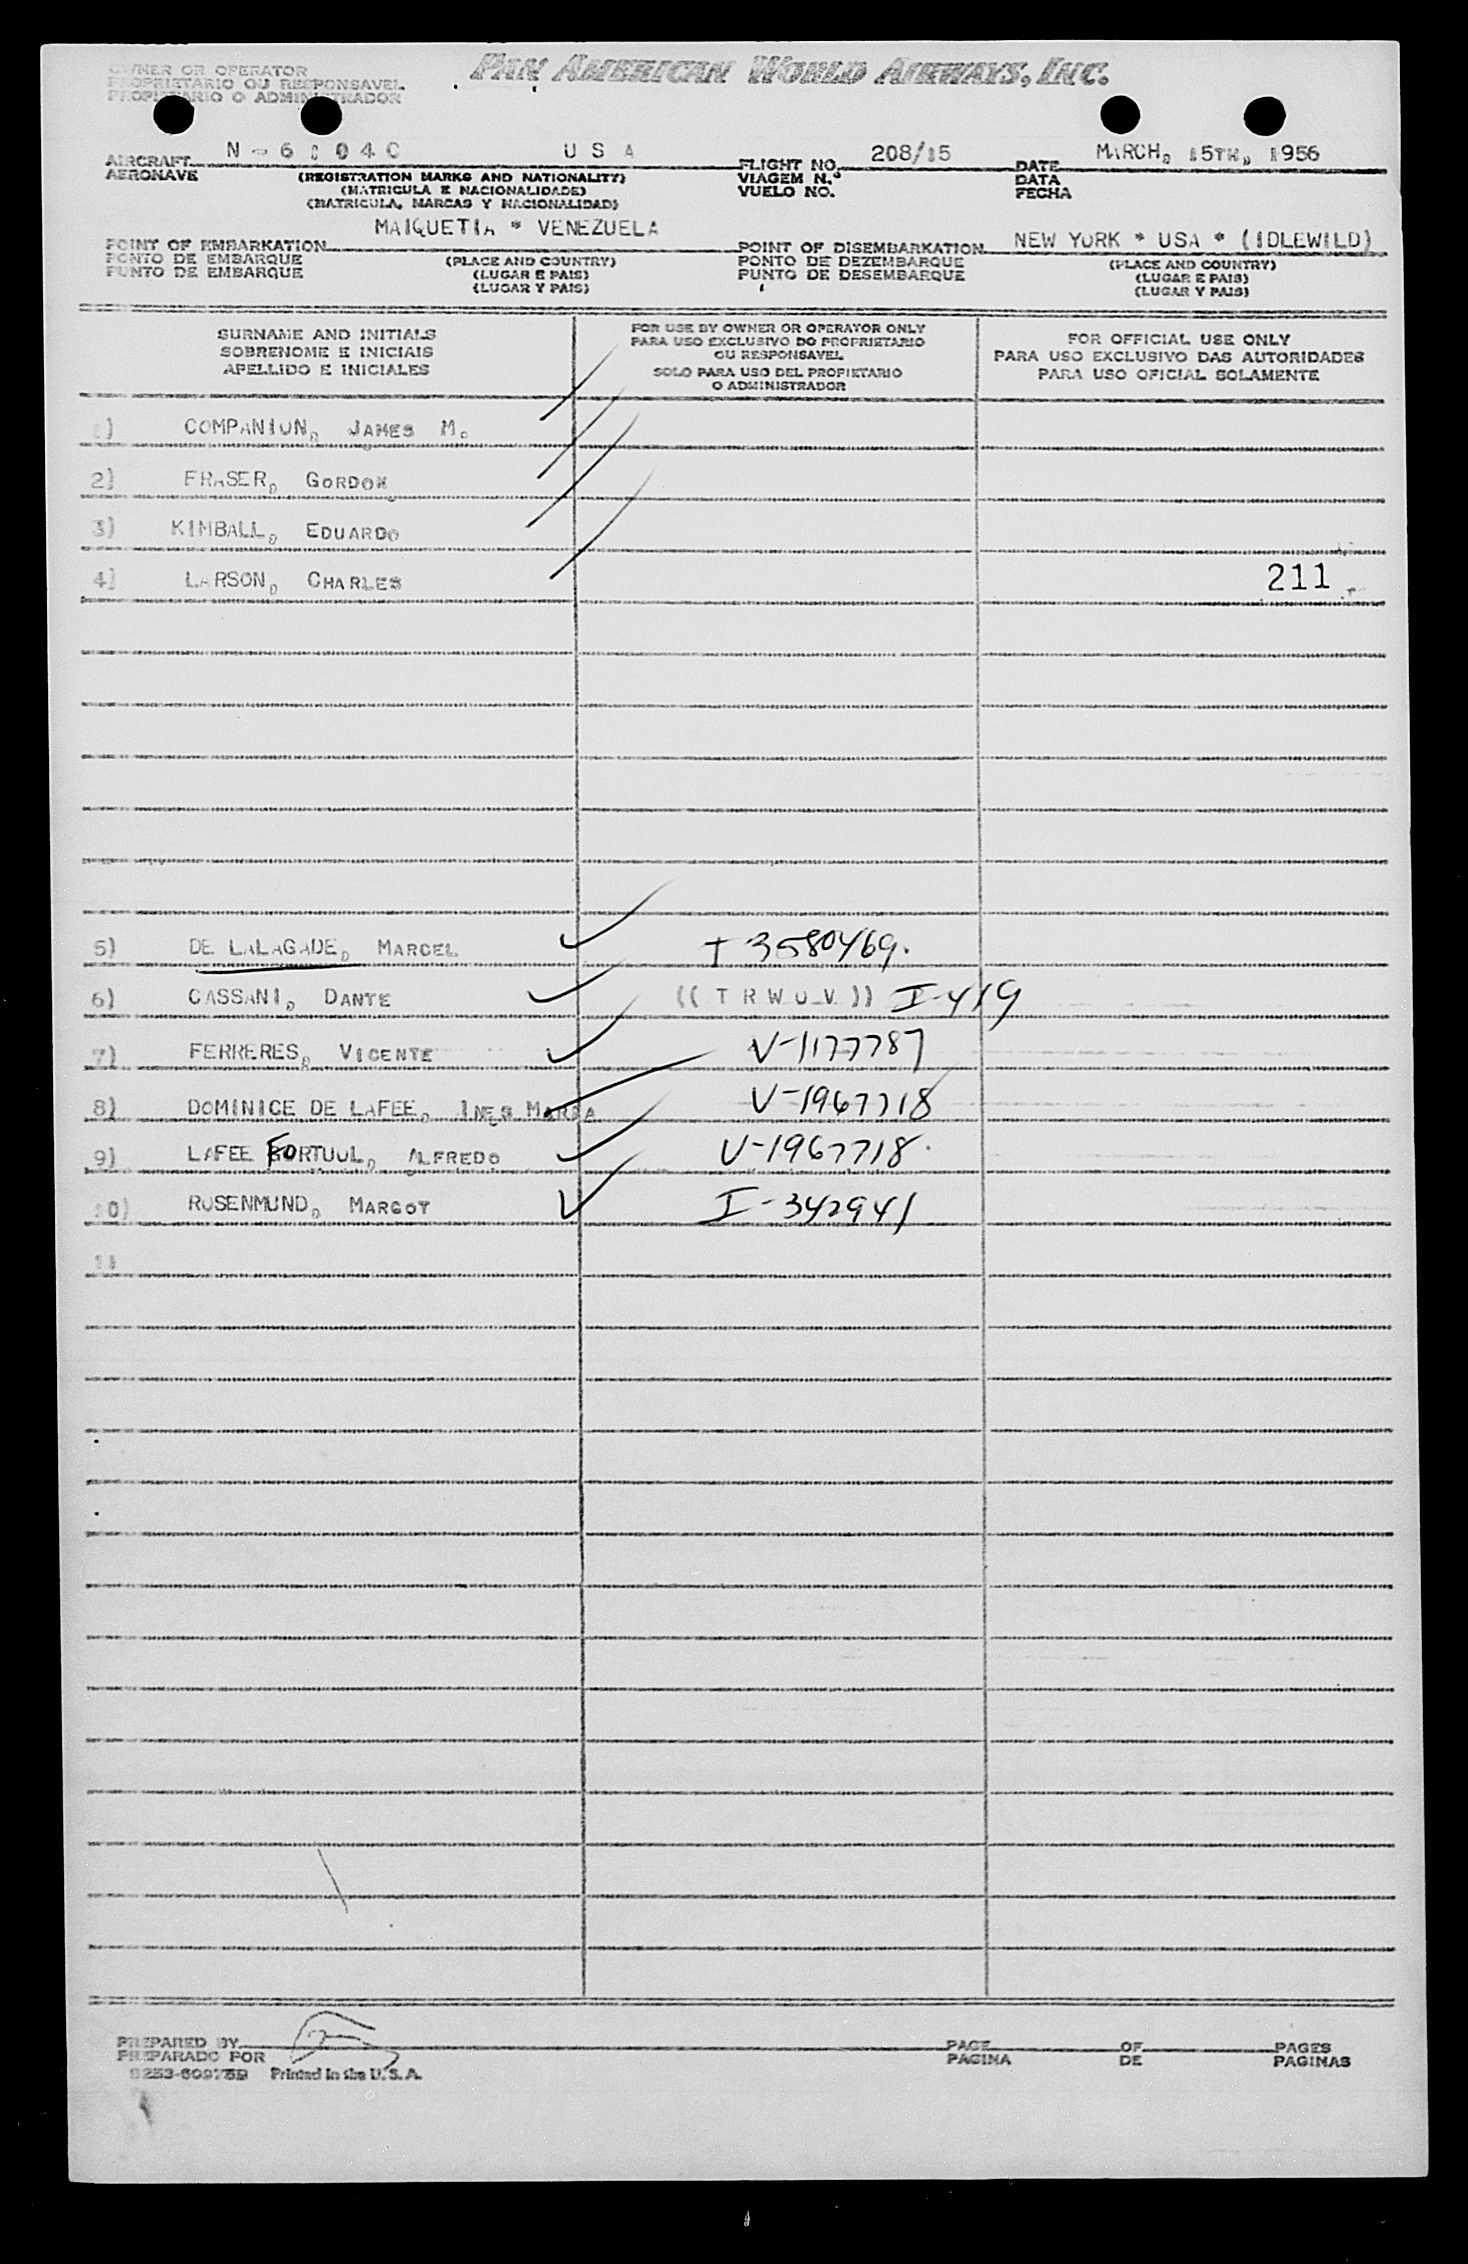 OWNER OR OPERATOR
PROPRIETARIO OU RESPONSAVEL
PROPIETARIO O ADMINISTRADOR
PAN AMERICAN WORLD AIRWAYS, INC.
AIRCRAFT N-6004C USA FLIGHT NO. 208/15 DATE MARCH, 15TH, 1956
AERONAVE (REGISTRATION MARKS AND NATIONALITY) VIAGEM N.º DATA
(MATRICULA E NACIONALIDADE) VUELO NO. FECHA
(MATRICULA, MARCAS Y NACIONALIDAD)
POINT OF EMBARKATION MAIQUETIA * VENEZUELA POINT OF DISEMBARKATION NEW YORK * USA * (IDLEWILD)
PONTO DE EMBARQUE (PLACE AND COUNTRY) PONTO DE DEZEMBARQUE (PLACE AND COUNTRY)
PUNTO DE EMBARQUE (LUGAR E PAIS) PUNTO DE DESEMBARQUE (LUGAR E PAIS)
(LUGAR Y PAIS) (LUGAR Y PAIS)
SURNAME AND INITIALS
SOBRENOME E INICIAIS
APELLIDO E INICIALES
FOR USE BY OWNER OR OPERATOR ONLY
PARA USO EXCLUSIVO DO PROPRIETARIO
OU RESPONSAVEL
SOLO PARA USO DEL PROPIETARIO
O ADMINISTRADOR
FOR OFFICIAL USE ONLY
PARA USO EXCLUSIVO DAS AUTORIDADES
PARA USO OFICIAL SOLAMENTE
1) COMPANION, JAMES M.
2) FRASER, GORDON
3) KIMBALL, EDUARDO
4) LARSON, CHARLES 211
5) DE LALAGADE, MARCEL T 3580469.
6) CASSANI, DANTE ((TRWOV)) I-419
7) FERRERES, VICENTE V-1177787
8) DOMINICE DE LAFEE, INES MARIA V-1967718
9) LAFEE FORTUUL, ALFREDO V-1967718.
10) ROSENMUND, MARGOT I-342941
11
PREPARED BY PAGE OF PAGES
PREPARADO POR PAGINA DE PAGINAS
Printed in the U.S.A.